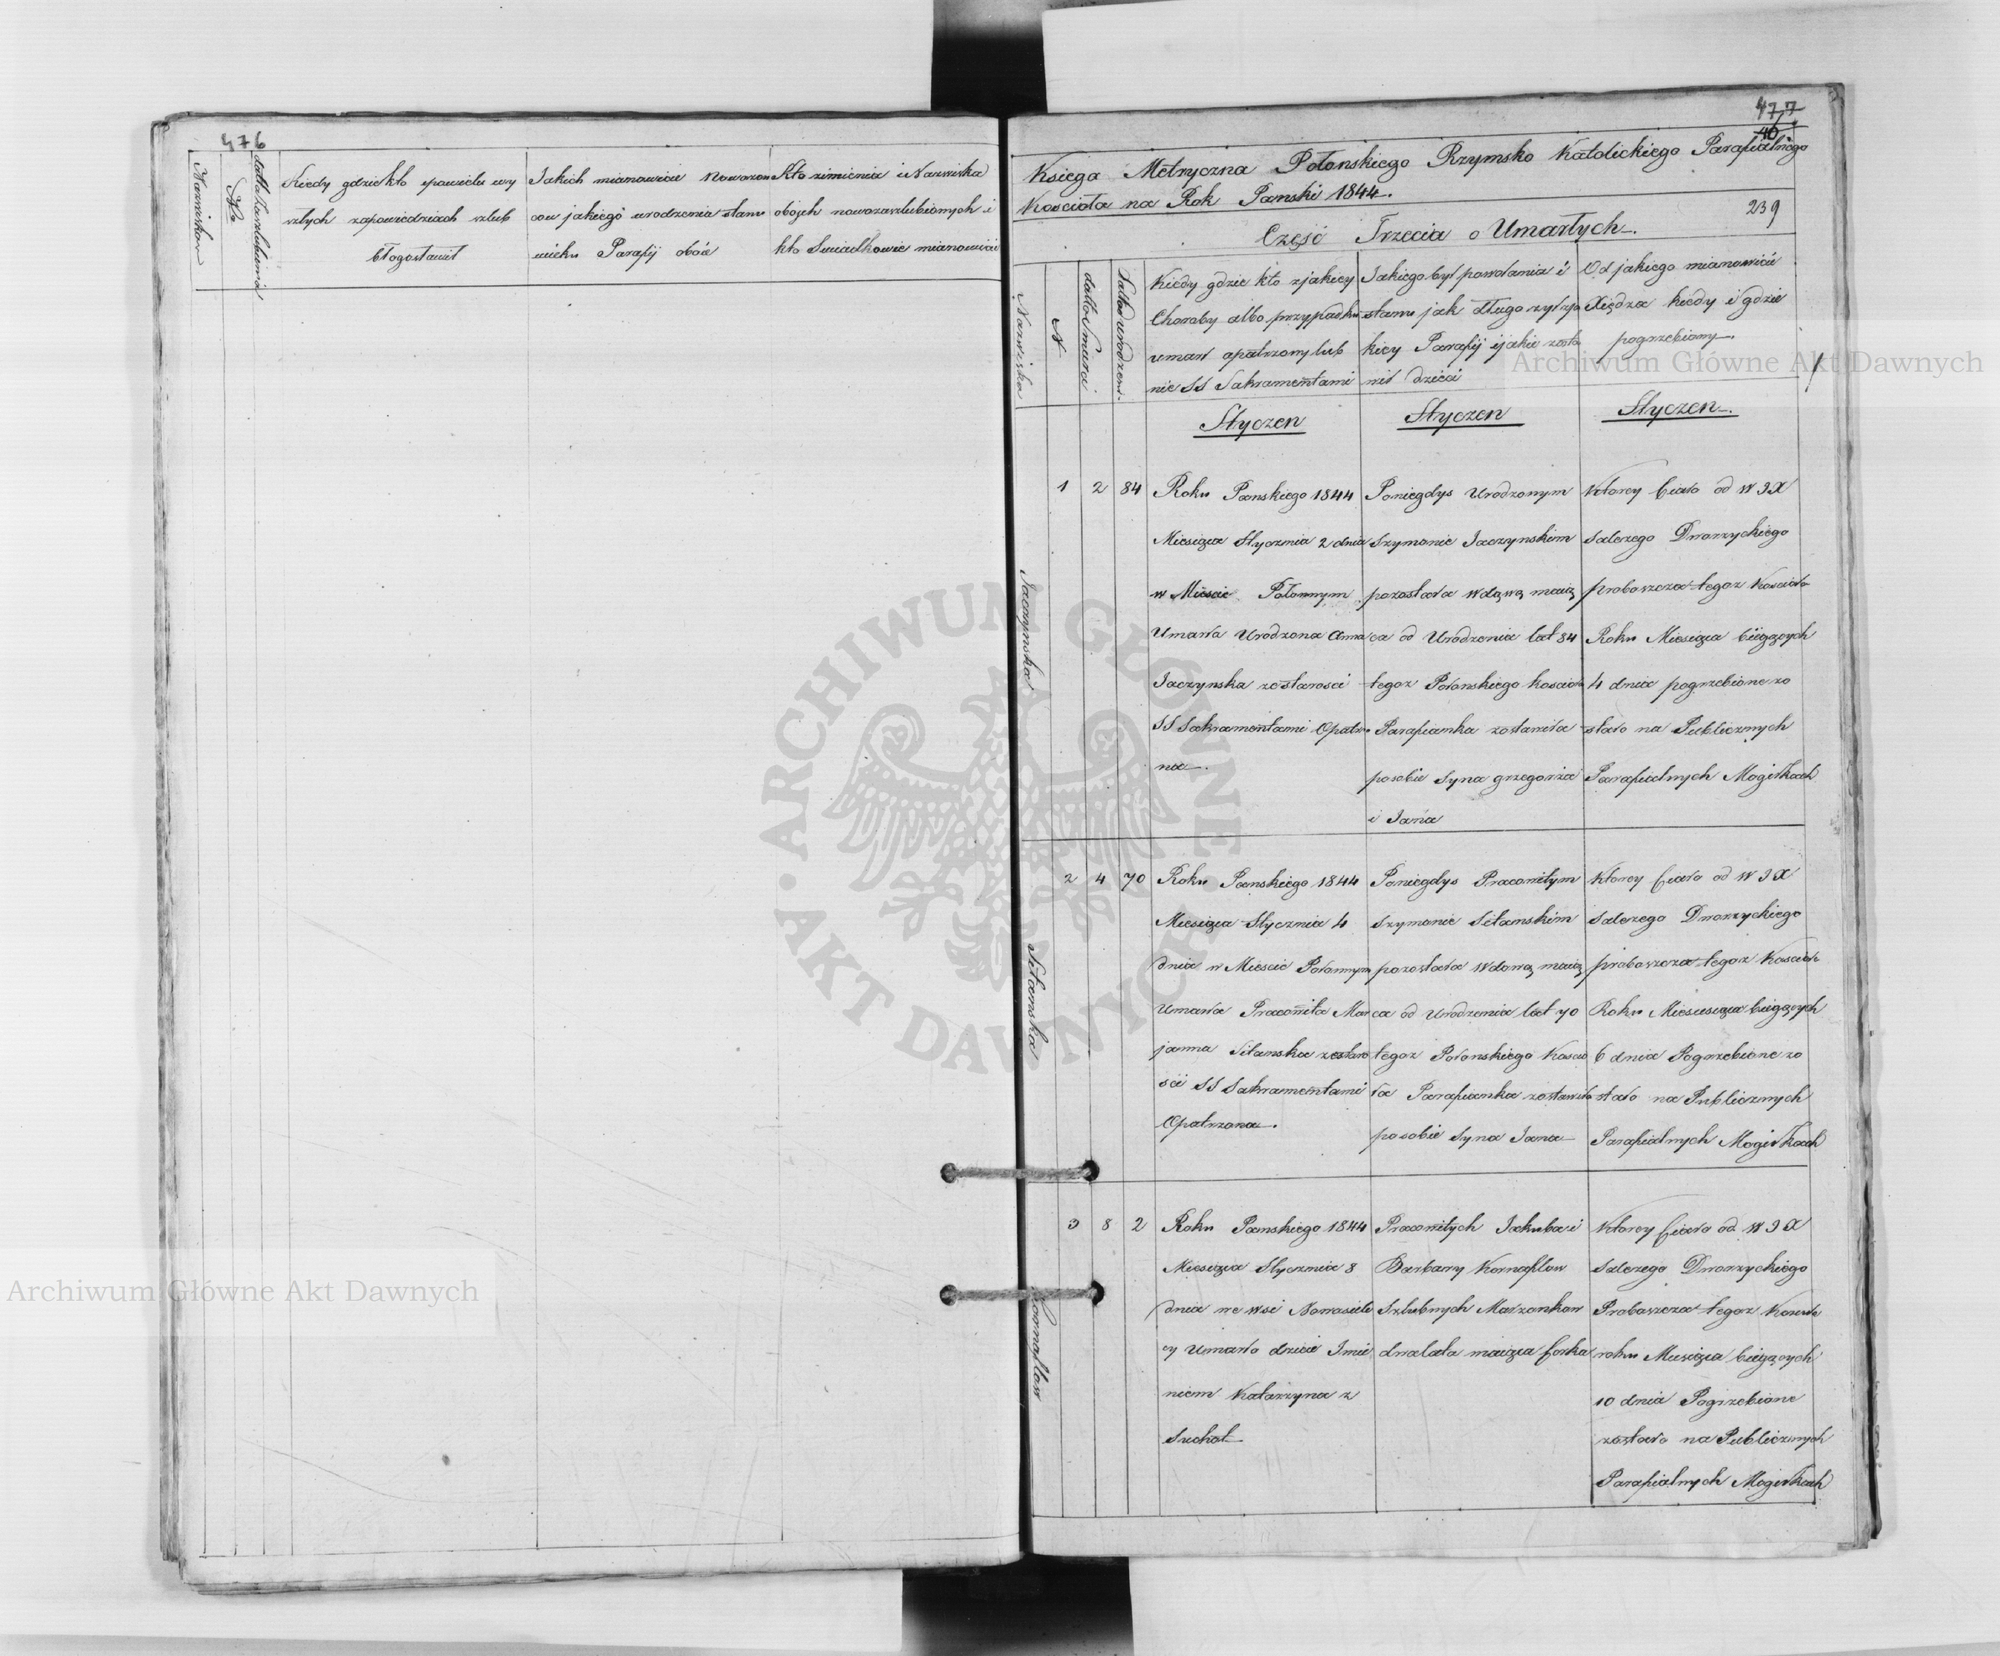 476
Nazwisko
No
datta Zaslubienia
Kiedy gdzie kto i po wielu wy
szłych zapowiedziach szlub
błogosławił
Jakich mianowicie Nowozen
cow jakiego urodzenia stanu
wieku Parafij oboie
Kto z imienia i Nazwiska
obojch nowozaszlubionych i
kto Swiadkowie mianowicie
477
40
Księga Metryczna Połonskiego Rzymsko Katolickiego Parafialnego
Koscioła na Rok Panski 1844.
239
Częsć Trzecia o Umarłych.
Nazwisko
N
datta Smierci
Latta urodzen.
Kiedy gdzie kto z jakiey
Choroby albo przypadku
umarł opatrzony lub
nie SS Sakramentami
Jakiego był powołania i
stanu jak długo zył z ja
kiey Parafij i jakie zosta
wił dzieci
Od jakiego mianowicie
Xiędza kiedy i gdzie
pogrzebiony
Styczen
Styczen
Styczen
Jaczynska
1 2 84
Roku Panskiego 1844
Miesiąca Stycznia 2 dnia
w Miescie Połonnym
Umarła Urodzona Anna
Jaczynska ze starosci
SS Sakramentami Opatrzo
na
Poniegdys Urodzonym
Szymonie Jaczynskim
pozostała wdową maią
ca od Urodzenia lat 84
tegoz Połonskiego koscioła
Parafianka zostawiła
po sobie Syna grzegorza
i Jana
Ktorey Ciało od W J X
Salezego Dworzyckiego
proboszcza tegoz Koscioła
Roku Miesiąca biegących
4 dnia pogrzebione zo
stało na Publicznych
Parafialnych Mogiłkach
Sitanska
2 4 70
Roku Panskiego 1844
Miesiąca Stycznia 4
dnia w Miescie Połonnym
Umarła Pracowita Mar
janna Sitanska ze staro
sci SS Sakramentami
Opatrzona.
Poniegdys Pracowitym
Szymonie Sitanskim
pozostała Wdową maią
ca od Urodzenia lat 70
tegoz Połonskiego Koscio
ła Parafianka zostawiła
po sobie Syna Jana
Ktorey Ciało od W J X
Salezego Dworzyckiego
proboszcza tegoz Koscioła
Roku Miesiąca biegących
6 dnia Pogrzebione zo
stało na Publicznych
Parafialnych Mogiłkach
Kornaflow
3 8 2
Roku Panskiego 1844
Miesiąca Stycznia 8
dnia we wsi Nowosieli
cy Umarło dziecie Imie
niem Katarzyna z
Suchot
Pracowitych Jakuba i
Barbary Kornaflow
Szlubnych Małzonkow
dwalata maiąca Corka
Ktorey Ciało od W J X
Salezego Dworzyckiego
Proboszcza tegoz Koscioła
roku Miesiąca biegących
10 dnia Pogrzebione
zostało na Publicznych
Parafialnych Mogiłkach
Archiwum Główne Akt Dawnych
Archiwum Główne Akt Dawnych
ARCHIWUM GŁÓWNE AKT DAWNYCH